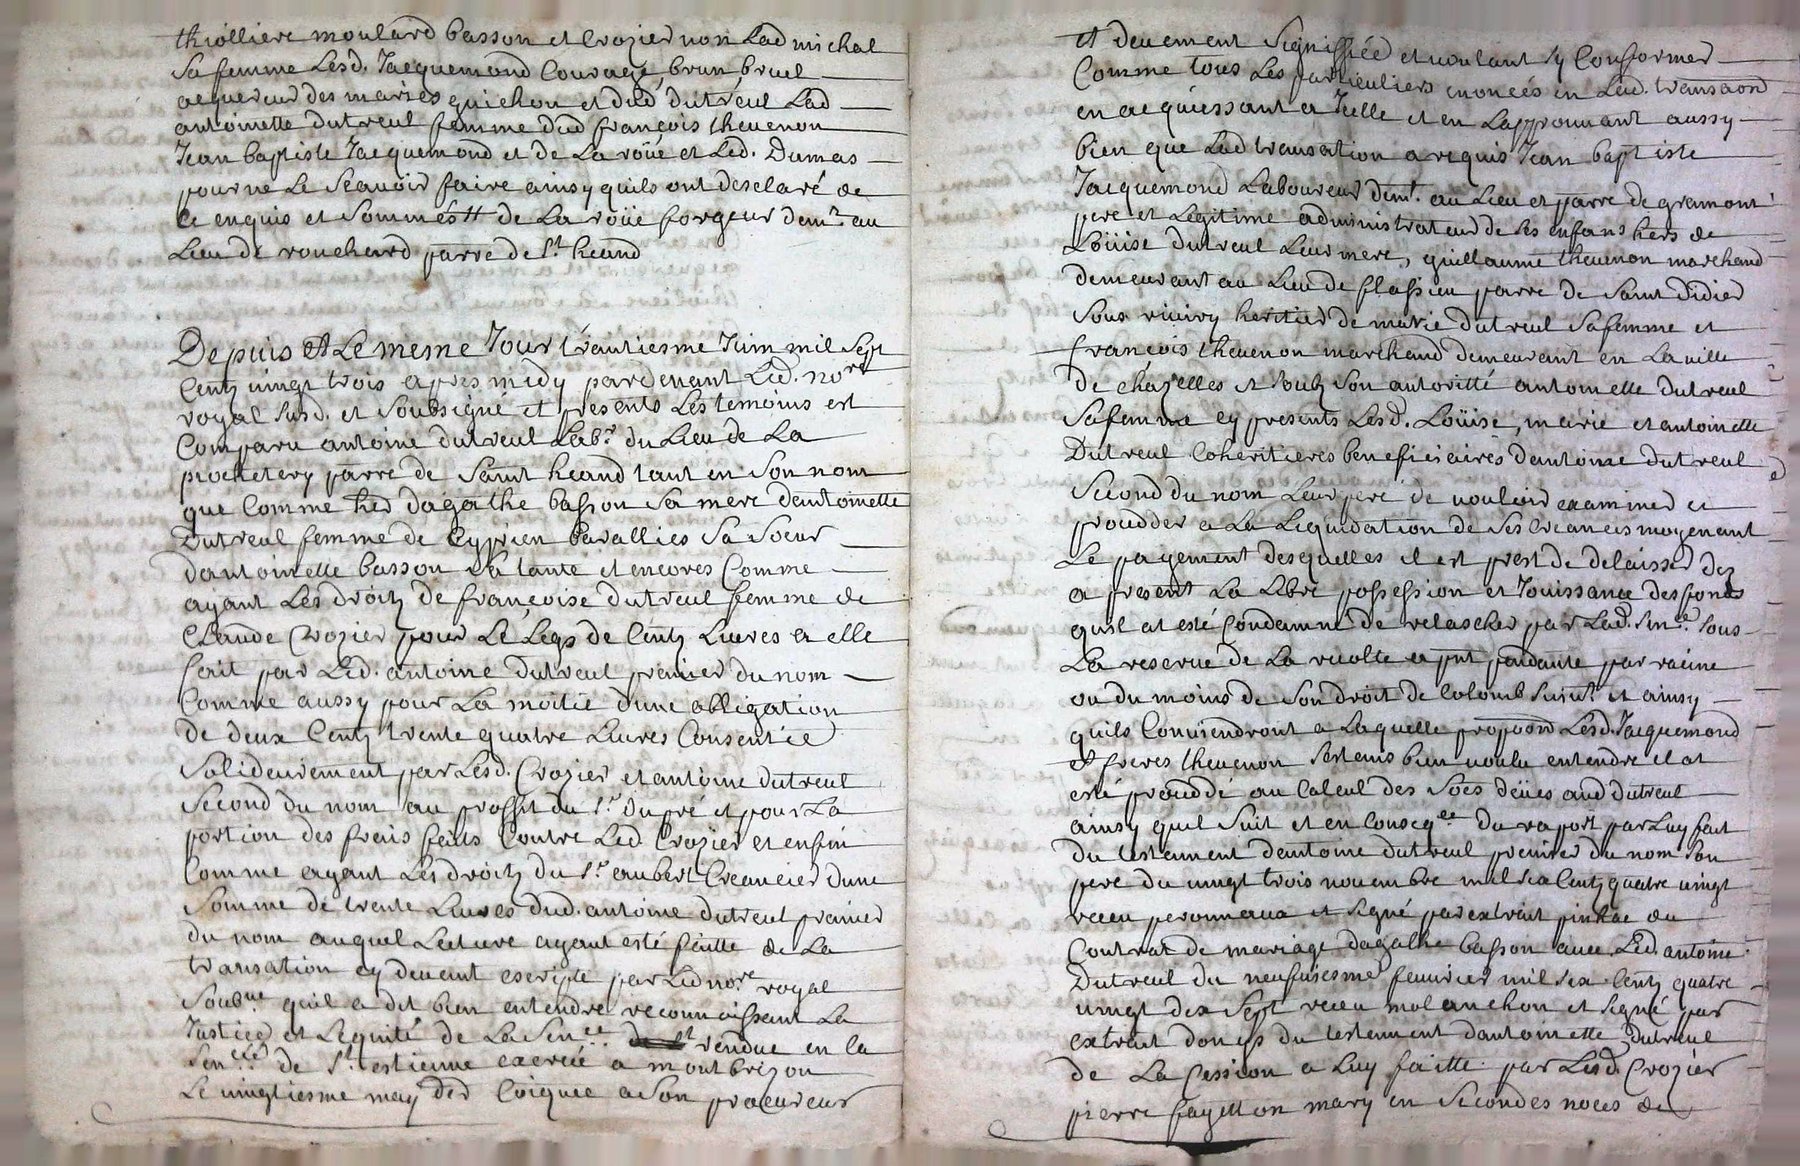 thiolliere moulard basson et Crozier non Lad michal
Sa femme Lesd. Jacquemond Couragé, brun, bruel
acquereur des maries guichon et dud dutreul Lad
antoinette dutreul femme dud françois thevenon
Jean baptiste Jacquemond et de La roüe et Led. Dumas
pour ne Le Scavoir faire ainsy quils ont desclaré de
ce enquis et Sommés # de La roüe forgeur demt au
Lieu de rouchard parre de St heand
Depuis Et Le mesme Jour trantiesme Juin mil Sept
Centz vingt trois apres midy pardevant Led. nore
royal Susd. et Soubsigné et presents Les temoins est
Comparu antoine dutreul Labr du Lieu de La
prochetery parre de Saint heand tant en Son nom
que Comme her dagathe basson Sa mere dantoinette
Dutreul femme de Cyprien Cavallies Sa Soeur
dantoinette basson Sa tante et encores Comme
ayant Les droitz de françoise dutreul femme de
Claude Crozier pour Le Legs de Centz Livres a elle
fait par Led. antoine dutreul premier du nom
Comme aussy pour La moitié dune obligation
de deux Centz trente quatre Livres Consentiee
Solidairement par Lesd. Crozier et antoine dutreul
Second du nom au proffit du Sr Dupré et pour La
portion des frais faits Contre Led Crozier et enfin
Comme ayant Les droitz du Sr aubert Creancier dune
Somme de trente Livres dud. antoine dutreul premier
du nom auquel Lecture ayant esté faitte de La
transation cy devant escripte par Led nore royal
Soubne quil a dit bien entendre reconnoissant La
Justice et Lequité de La Sence rendue en la
Senée de St estienne exercée a montbrizon
Le vingtiesme may der Coignee a Son procureur
et deuement Signiffiée et voulant Sy Conformer
Comme tous Les particuliers enoncés en Lad. transaon
en acquiessant a Icelle et en Lapprouvant aussy
bien que Lad transation a requis Jean baptiste
Jacquemond Laboureur demt. au Lieu et parre de gramont
pere et Legitime administrateur de Ses enfans hers de
Loüise dutreul Leur mere, guillaume thevenon marchand
demeurant au Lieu de flassieu parre de Saint didier
Sous riviry heritier de marie dutreul Sa femme et
françois thevenon marchand demeurant en La ville
de chazelles et Soubz Son autoritté antoinette dutreul
Sa femme cy presents Lesd. Loüise, marie et antoinette
Dutreul Coheritieres beneficiaires dantoine dutreul
Second du nom Leur pere de vouloir examiner et
proceder a La Liquidation de Ses creances moyenant
Le payement desquelles il est prest de delaisser dez
a present La Libre possession et Jouissance des fonds
quil at esté Condamné de relascher par Lad. Sence Sous
La reserve de La recolte a pnt pendante par racine
ou du moins de Son droit de Colomb et ainsy
quils Conviendront a Laquelle propoon Lesd. Jacquemond
et freres thevenon bien voulu entendre il at
esté proceddé au Calcul des Soes deües aud dutreul
ainsy quil Suit et en Conseqce du raport par Luy fait
du testament dantoine dutreul premier du nom Son
pere du vingt trois novembre mil Six Centz quatre vingt
receu peronneaux et Signé par extrait pinhac du
Contrat de mariage dagathe basson avec Led. antoine
Dutreul du neufviesme fevrier mil Six Centz quatre
vingt dix Sept receu molanchon et Signé par
extrait du testament dantoinette dutreul
de La Cession a Luy faitte par Lesd. Crozier
pierre fayetton mary en Secondes noces de